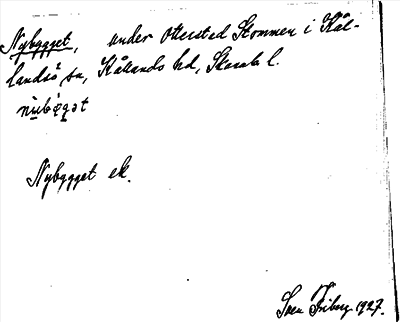 Nybygget, under Otterstad Stommen i Kål-
landsö sn, Kållands hd, Skarab l.
Nybygget ek.
Sven Friberg 1927.